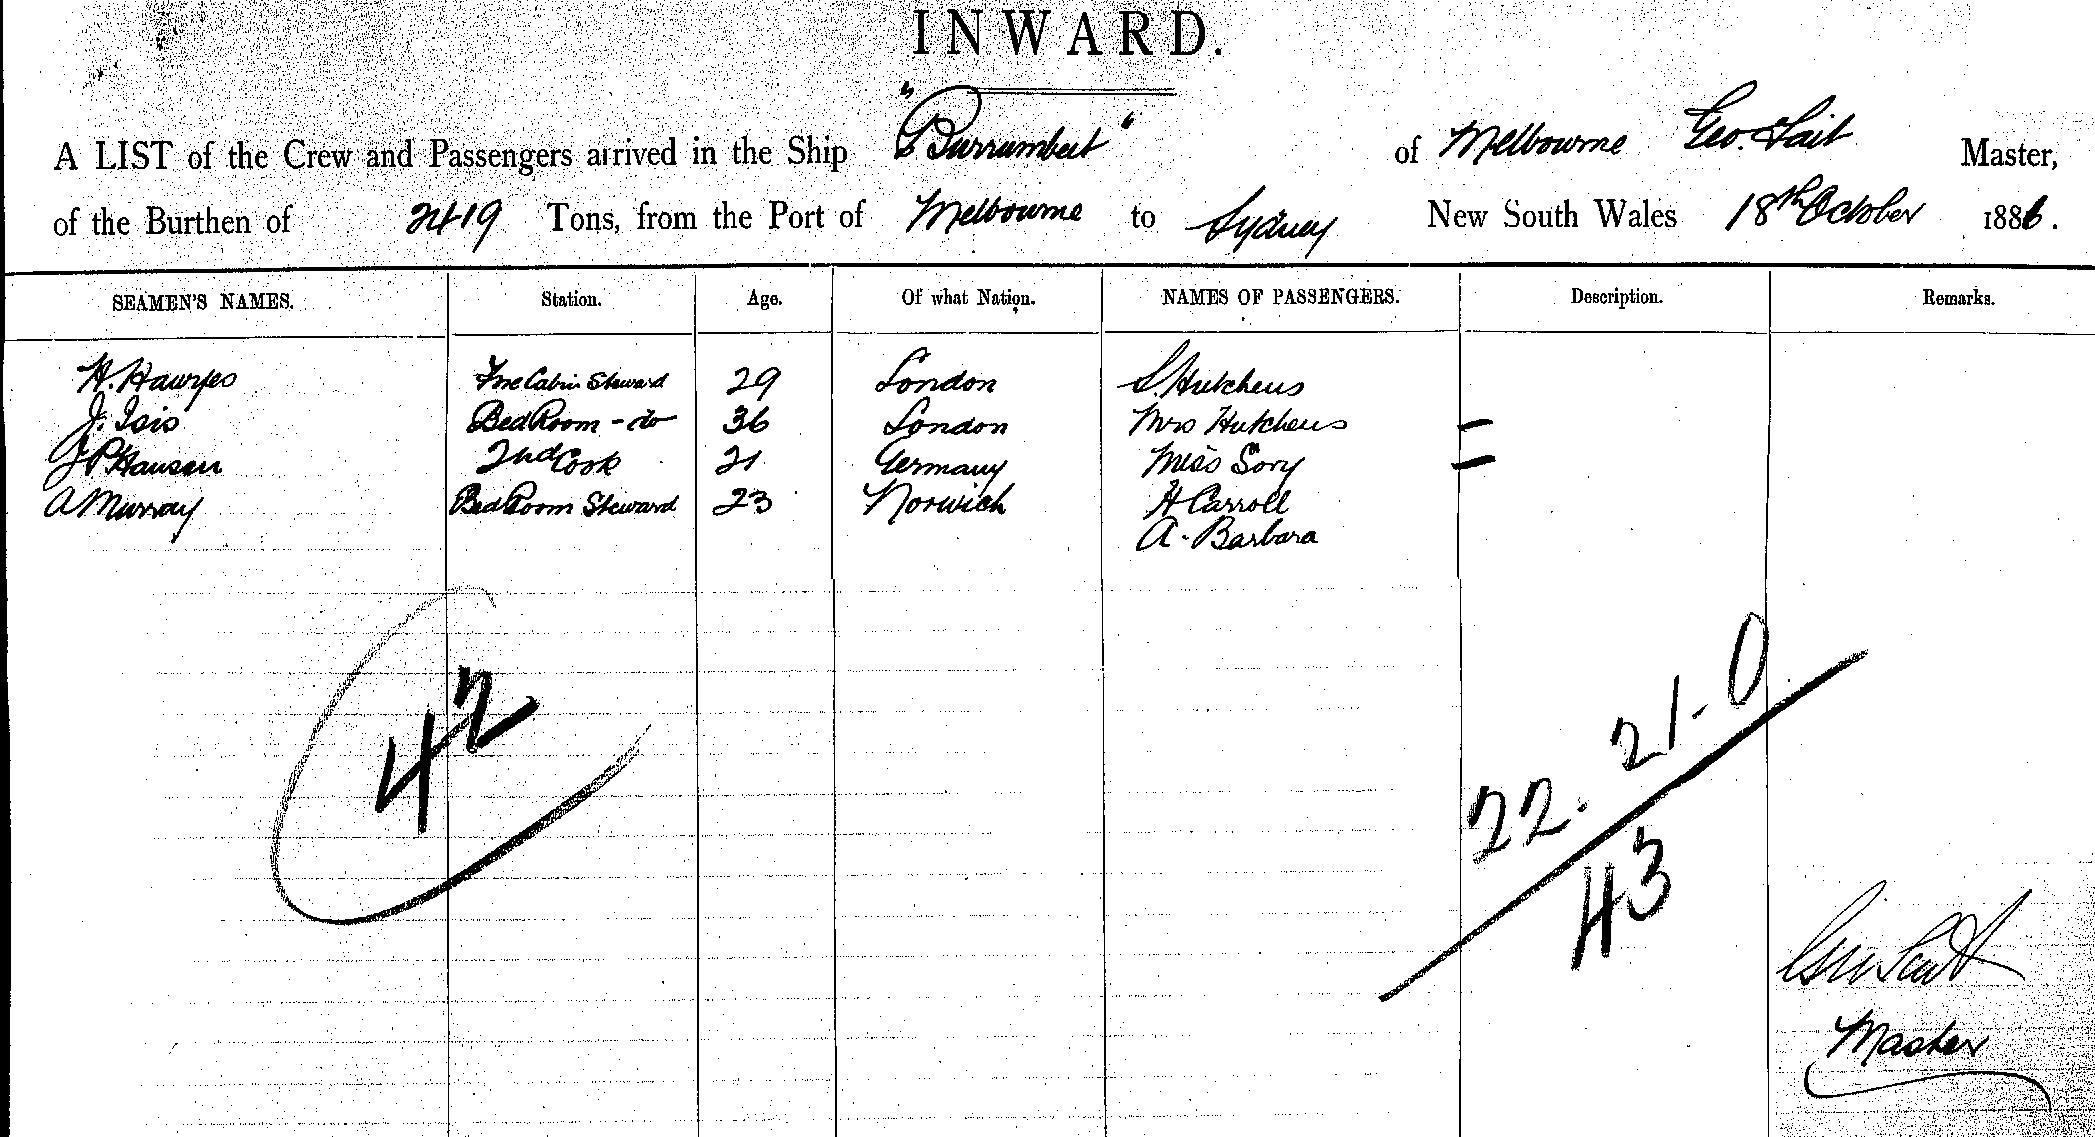 INWARD.
A LIST of the Crew and Passengers arrived in the Ship "Burrumbeet" of Melbourne Geo. Tait Master,
of the Burthen of 2419 Tons, from the Port of Melbourne to Sydney New South Wales 18th October 1886.
SEAMEN'S NAMES. Station. Age. Of what Nation. NAMES OF PASSENGERS. Description. Remarks.
H. Cabin Steward 29 London S. Hutchens
J. Bed Room - do 36 London Mrs Hutchens
J P Hansen 2nd Cook 21 Germany Miss Sory
A Murray Bed Room Steward 23 Norwich H Carroll
A. Barbara
42
22. 21-0
43
Master